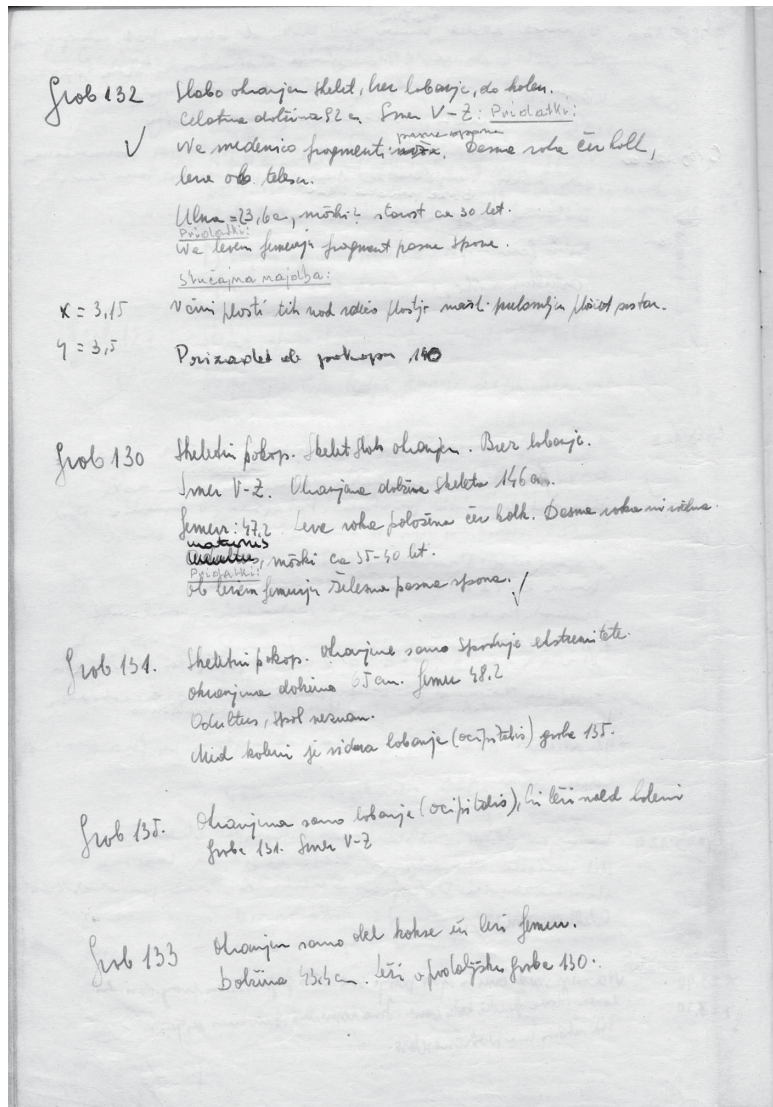 Grob 132 Slabo ohranjen skelet, brez lobanje, do kolen.
Celotna dolžina 92 cm. Smer V-Z. Pridatki:
pasne spone
Na medenico fragmenti. Desna roka čez kolk,
leva ob telesu.
Ulna = 23,6 cm, moški? starost ca 30 let.
Pridatki:
Na levem femurju fragment pasne spone.
Slučajna najdba:
x = 3,15 V črni plasti tik nad rdečo plastjo
y = 3,5 Prizadet ob prekopu 140
Grob 130 Skeletni pokop. Skelet slabo ohranjen. Brez lobanje.
Smer V-Z. Ohranjena dolžina skeleta 146 cm.
Femur: 47,2 Leva roka položena čez kolk. Desna roka ni vidna.
maturus
moški ca 35-40 let.
Pridatki:
Ob levem femurju železna pasna spona.
Grob 131. Skeletni pokop. Ohranjene samo spodnje ekstremitete.
Ohranjena dolžina 65 cm. Femur 48,2
Adultus, spol neznan.
Med koleni je videna lobanja (ocipitalis) groba 135.
Grob 135. Ohranjena samo lobanja (ocipitalis), ki leži med koleni
groba 131. Smer V-Z
Grob 133 Ohranjen samo del kokse in levi femur.
Dolžina 43,4 cm. Leži v podaljšku groba 130.